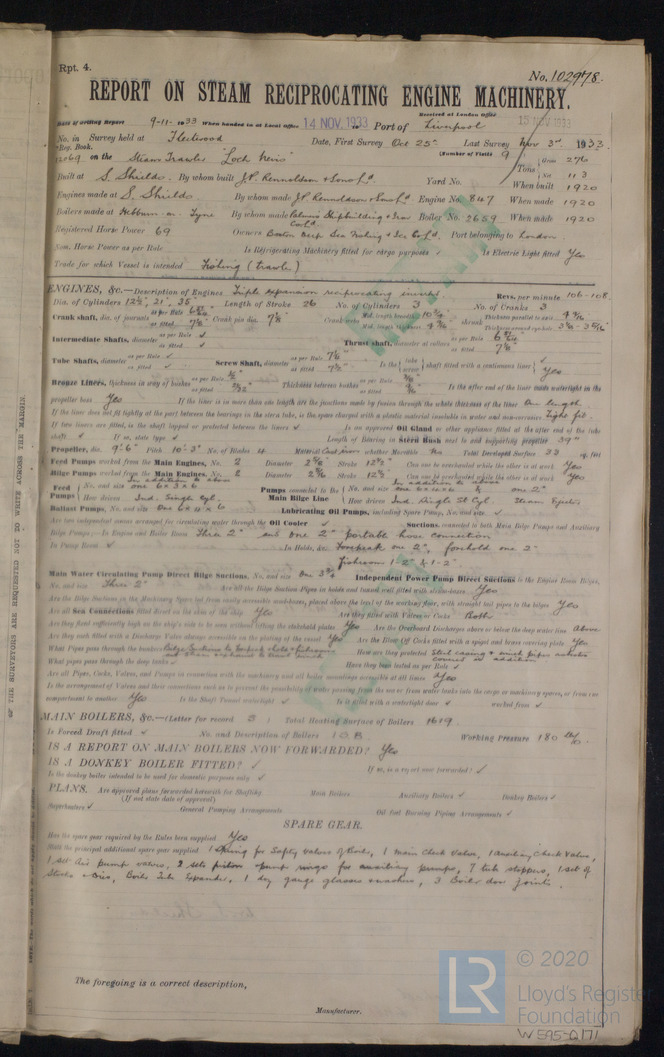 Rpt. 4.
No. 102978.
REPORT ON STEAM RECIPROCATING ENGINE MACHINERY.
Received at London Office
Date of writing Report 9-11-1933 When handed in at Local Office 14 NOV. 1933 Port of Liverpool 15 NOV 1933
No. in Survey held at Fleetwood Date, First Survey Oct 25 Last Survey Nov 3rd 1933
Reg. Book. (Number of Visits 9)
on the Steam Trawler "Loch Nevis" Tons Gross 276 Net 113
Built at S. Shields By whom built J.P. Rennoldson & Sons Ld Yard No. When built 1920
Engines made at S. Shields By whom made J.P. Rennoldson & Sons Ld Engine No. 847 When made 1920
Boilers made at Hebburn on Tyne By whom made Palmers Shipbuilding & Iron Co Ld Boiler No. 2659 When made 1920
Registered Horse Power 69 Owners Boston Deep Sea Fishing & Ice Co Ld Port belonging to London
Nom. Horse Power as per Rule Is Refrigerating Machinery fitted for cargo purposes ✓ Is Electric Light fitted Yes
Trade for which Vessel is intended Fishing (trawler)
ENGINES, &c.—Description of Engines Triple expansion reciprocating inverted Revs. per minute 106-108
Dia. of Cylinders 12½, 21, 35 Length of Stroke 26 No. of Cylinders 3 No. of Cranks 3
Crank shaft, dia. of journals as per Rule as fitted 7⅛ Crank pin dia. 7⅛ Crank webs Mid. length breadth Mid. length thickness shrunk Thickness parallel to axis Thickness around eyehole
Intermediate Shafts, diameter as per Rule ✓ as fitted ✓ Thrust shaft, diameter at collars as per Rule as fitted
Tube Shafts, diameter as per Rule ✓ as fitted ✓ Screw Shaft, diameter as per Rule as fitted Is the tube screw shaft fitted with a continuous liner Yes
Bronze Liners, thickness in way of bushes as per Rule as fitted Thickness between bushes as per Rule as fitted Is the after end of the liner made watertight in the
propeller boss Yes If the liner is in more than one length are the junctions made by fusion through the whole thickness of the liner One length
If the liner does not fit tightly at the part between the bearings in the stern tube, is the space charged with a plastic material insoluble in water and non-corrosive Tight fit
If two liners are fitted, is the shaft lapped or protected between the liners ✓ Is an approved Oil Gland or other appliance fitted at the after end of the tube
shaft ✓ If so, state type ✓ Length of Bearing in Stern Bush next to and supporting propeller 39"
Propeller, dia. 9'-6" Pitch 10'-3" No. of Blades 4 Material Cast iron whether Moveable No Total Developed Surface 33 sq. feet
Feed Pumps worked from the Main Engines, No. 2 Diameter Stroke 12½" Can one be overhauled while the other is at work Yes
Bilge Pumps worked from the Main Engines, No. 2 Diameter Stroke 12½" Can one be overhauled while the other is at work Yes
In addition to above In addition to above
Feed Pumps No. and size one 6 x 3 x 6 Pumps connected to the Main Bilge Line No. and size one 6 x 4 x 6 & one 2"
How driven Ind. Single Cyl. How driven Ind. Single St Cyl. Steam Eject.
Ballast Pumps, No. and size One 6 x 4 x 6 Lubricating Oil Pumps, including Spare Pump, No. and size ✓
Are two independent means arranged for circulating water through the Oil Cooler ✓ Suctions, connected to both Main Bilge Pumps and Auxiliary
Bilge Pumps:—In Engine and Boiler Room Three 2" and one 2" portable hose connection
In Pump Room ✓ In Holds, &c. Forepeak one 2", forehold one 2"
Fishroom 1-2" & 1-2"
Main Water Circulating Pump Direct Bilge Suctions, No. and size One Independent Power Pump Direct Suctions to the Engine Room Bilges,
No. and size Three 2" Are all the Bilge Suction Pipes in holds and tunnel well fitted with strum-boxes Yes
Are the Bilge Suctions in the Machinery Space led from easily accessible mudboxes, placed above the level of the working floor, with straight tail pipes to the bilges Yes
Are all Sea Connections fitted direct on the skin of the ship Yes Are they fitted with Valves or Cocks Both
Are they fixed sufficiently high on the ship's side to be seen without lifting the stokehold plates Yes Are the Overboard Discharges above or below the deep water line Above
Are they each fitted with a Discharge Valve always accessible on the plating of the vessel Yes Are the Blow Off Cocks fitted with a spigot and brass covering plate Yes
What Pipes pass through the bunkers Bilge Suctions to forepeak, hold & fishroom How are they protected Steel casing & winch pipes
What pipes pass through the deep tanks ✓ Have they been tested as per Rule ✓
Are all Pipes, Cocks, Valves, and Pumps in connection with the machinery and all boiler mountings accessible at all times Yes
Is the arrangement of Valves and their connections such as to prevent the possibility of water passing from the sea or from water tanks into the cargo or machinery spaces, or from one
compartment to another Yes Is the Shaft Tunnel watertight ✓ Is it fitted with a watertight door ✓ worked from ✓
MAIN BOILERS, &c.—(Letter for record S) Total Heating Surface of Boilers 1619
Is Forced Draft fitted ✓ No. and Description of Boilers 1 S.B. Working Pressure 180 lb/
IS A REPORT ON MAIN BOILERS NOW FORWARDED? Yes
IS A DONKEY BOILER FITTED? ✓ If so, is a report now forwarded? ✓
Is the donkey boiler intended to be used for domestic purposes only ✓
PLANS. Are approved plans forwarded herewith for Shafting Main Boilers Auxiliary Boilers ✓ Donkey Boilers ✓
(If not state date of approval)
Superheaters ✓ General Pumping Arrangements Oil fuel Burning Piping Arrangements ✓
SPARE GEAR.
Has the spare gear required by the Rules been supplied Yes
State the principal additional spare gear supplied 1 Spring for Safety valves of Boiler, 1 Main Check Valve, 1 Auxiliary Check Valve,
1 set air pump valves, 2 sets piston rings for auxiliary pumps, 7 tube stoppers, 1 set of
Stocks & Dies, Boiler Tube Expander, 1 doz gauge glasses & washers, 3 Boiler door joints.
The foregoing is a correct description,
Manufacturer.
OF THE SURVEYORS ARE REQUESTED NOT TO WRITE ACROSS THE MARGIN.
LR
© 2020
Lloyd's Register
Foundation
W595-0171